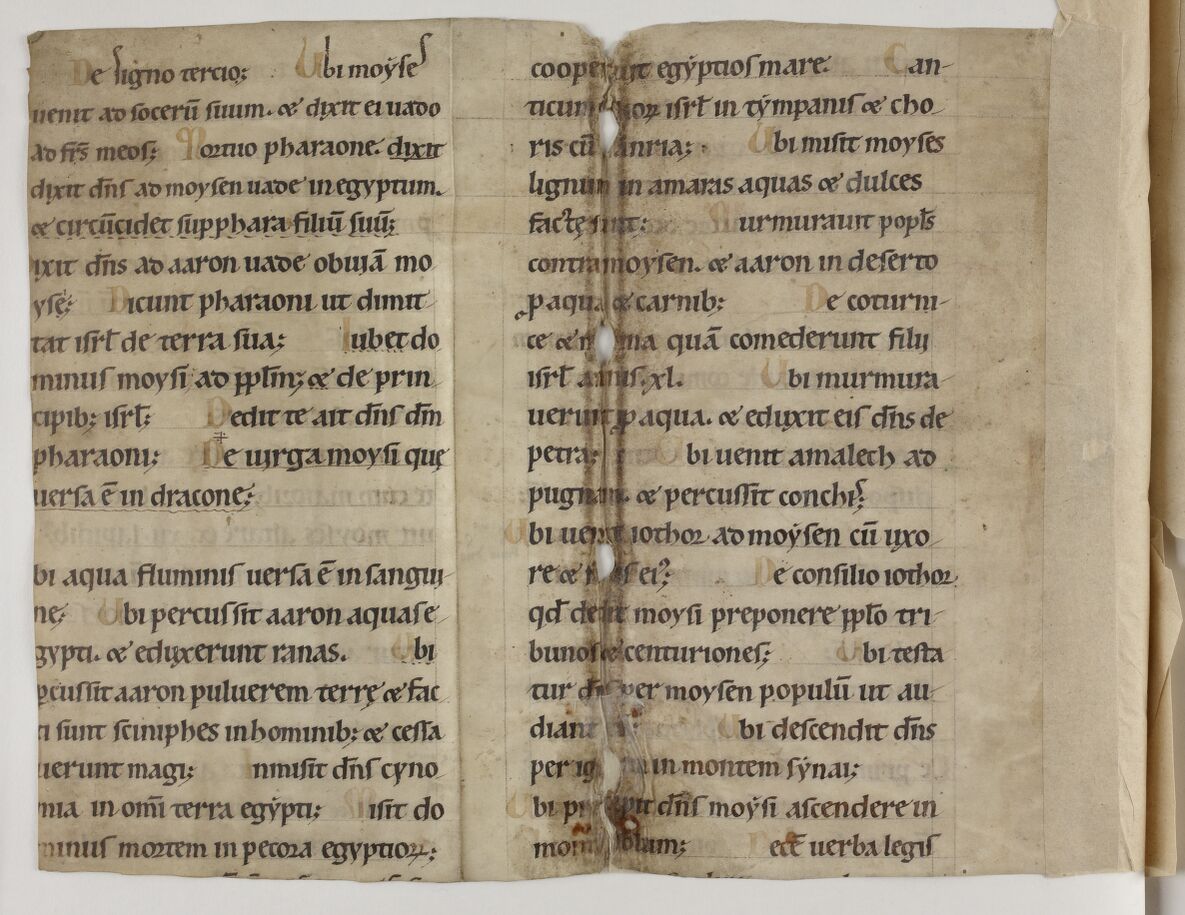 De signo tercio; Ubi moyses
uenit ad socerū suum. & dixit ei uado
ad frs̄ meos; Mortuo pharaone. dixit
dixit dn̄s ad moysen uade in egyptum.
& circūcidet suþ phara filiū suū;
ixit dn̄s ad aaron uade obuiā mo
ysę; Dicunt pharaoni ut dimit
tat isrł de terra sua; Iubet do
minus moysi ad ppłm; & de prin
cipib; isrł; Dedit te ait dn̄s dm̄
pharaoni; De uirga moysi quę
uersa ē in dracone;
bi aqua fluminis uersa ē in sangui
ne; Ubi percussit aaron aquas e
gypti. & eduxerunt ranas. Ubi
ꝑcussit aaron puluerem terrę & fac
ti sunt sciniphes in hominib; & cessa
uerunt magi; Inmisit dn̄s cyno
mia in omī terra egypti; Misit do
minus mortem in pecora egyptioꝝ;
cooperuit egyptios mare. Can
ticum isrł in tympanis & cho
ris cū; Ubi misit moyses
lignum in amaras aquas & dulces
factę sunt; Murmurauit popłs
contra moysen. & aaron in deserto
ꝓ aqua & carnib; De coturni
ce & quā comederunt filii
isrł annis. xl. Ubi murmura
uerunt ꝓ aqua. & eduxit eis dn̄s de
petra; Ubi uenit amalech ad
pugnam. & percussit
Ubi uenit iothor ad moysen cū uxo
re & ei; De consilio iothor
qđ dedit moysi preponere ppło tri
bunos & centuriones; Ubi testa
tur dn̄s per moysen populū ut au
diant Ubi descendit dn̄s
per in montem synai;
Ubi dn̄s moysi ascendere in
uerba legis